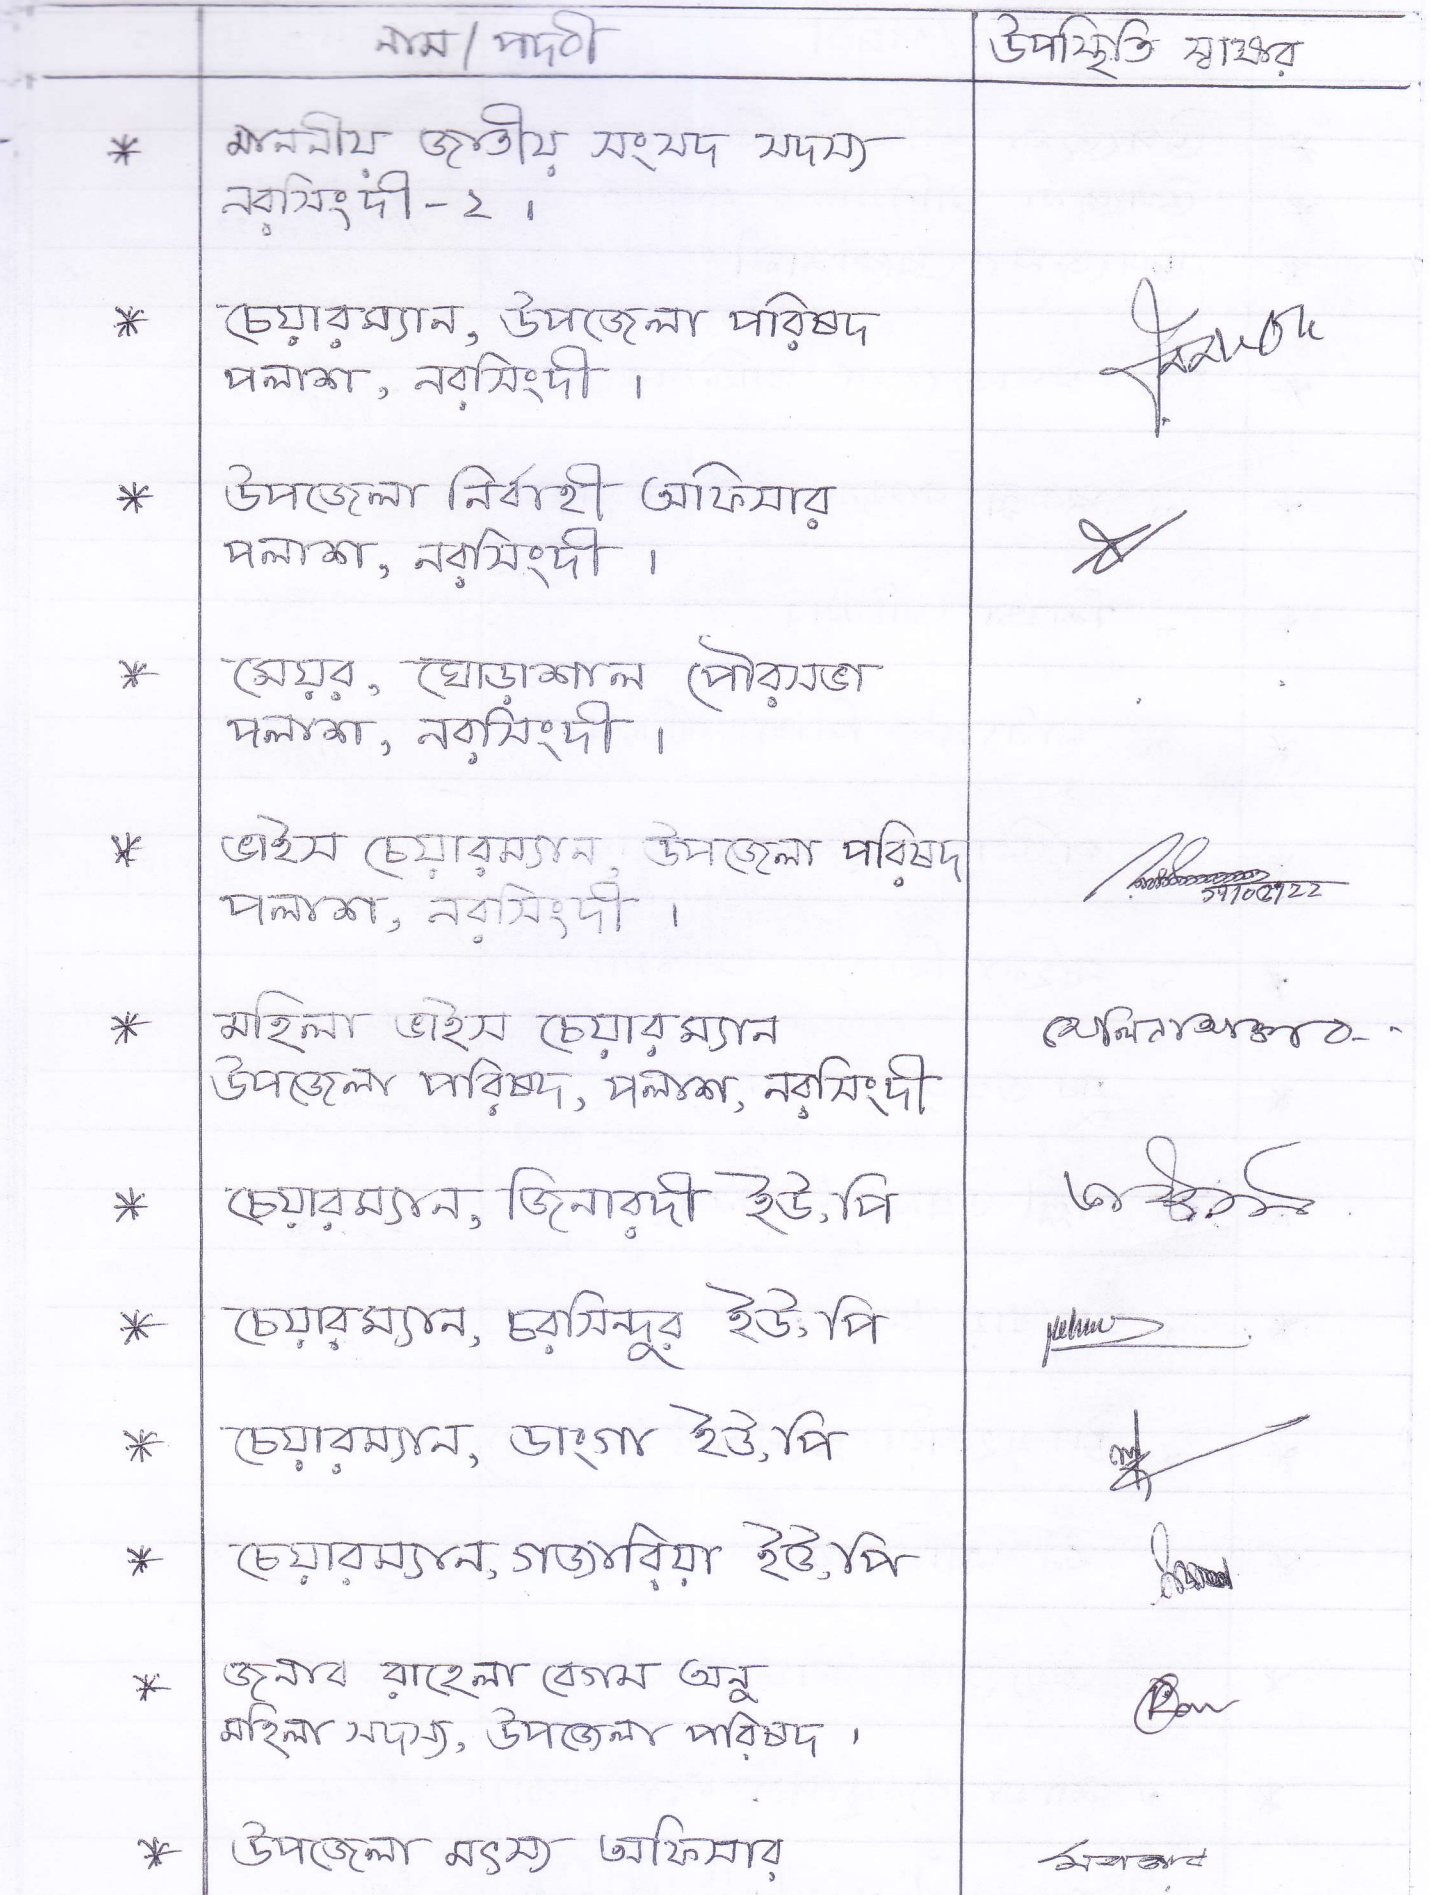 নাম / পদবী
উপস্থিতি স্বাক্ষর
* মাননীয় জাতীয় সংসদ সদস্য
নরসিংদী - ২ ।
* চেয়ারম্যান, উপজেলা পরিষদ
পলাশ, নরসিংদী ।
* উপজেলা নির্বাহী অফিসার
পলাশ, নরসিংদী ।
* মেয়র, ঘোড়াশাল পৌরসভা
পলাশ, নরসিংদী ।
* ভাইস চেয়ারম্যান, উপজেলা পরিষদ
পলাশ, নরসিংদী ।
* মহিলা ভাইস চেয়ারম্যান
উপজেলা পরিষদ, পলাশ, নরসিংদী
* চেয়ারম্যান, জিনারদী ইউ,পি
* চেয়ারম্যান, চরসিন্দুর ইউ,পি
* চেয়ারম্যান, ডাংগা ইউ,পি
* চেয়ারম্যান, গজারিয়া ইউ,পি
* জনাব রাহেলা বেগম অনু
মহিলা সদস্য, উপজেলা পরিষদ ।
* উপজেলা মৎস্য অফিসার